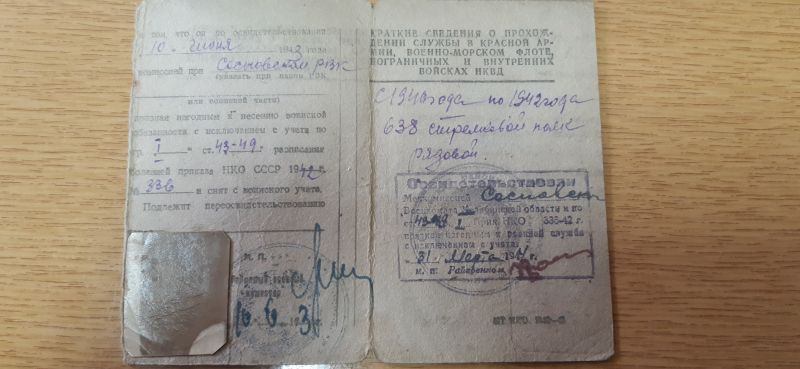 в том, что он по освидетельствовании
10 июня 1943 года
комиссией при Сосновском РВК
(указать при каком РВК
или воинской части)
признан негодным к несению воинской
обязанности с исключением с учета по
гр. I ст. 43-49. расписания
болезней приказа НКО СССР 1942 г.
№ 336 и снят с воинского учета.
Подлежит переосвидетельствованию
М. П.
10 6 3
КРАТКИЕ СВЕДЕНИЯ О ПРОХОЖ-
ДЕНИИ СЛУЖБЫ В КРАСНОЙ АР-
МИИ, ВОЕННО-МОРСКОМ ФЛОТЕ,
ПОГРАНИЧНЫХ И ВНУТРЕННИХ
ВОЙСКАХ НКВД
с 1940 года по 1942 года
638 стрелковой полк
рядовой.
Освидетельствован
Медкомиссией Сосновск
Военкомата Челябинской области и по
ст. I прик. НКО 336-42 г.
признан негодным к военной службе
с исключением с учета.
31 Марта 194
м. п. Райвоенком